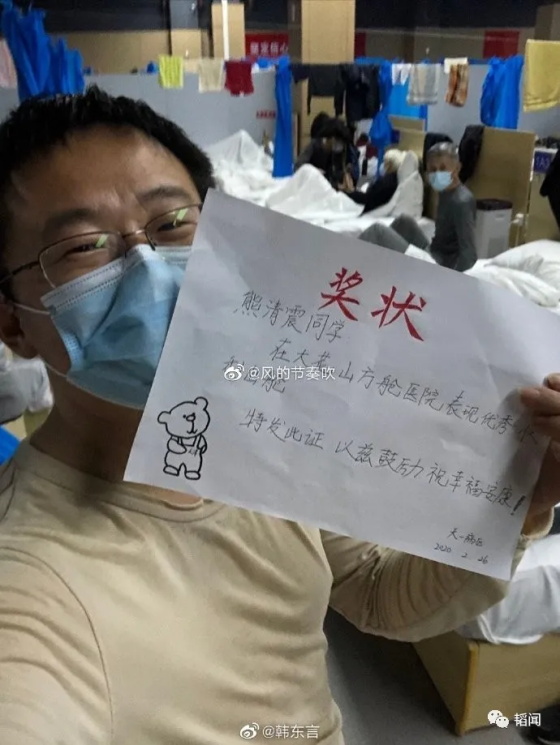 坚定信心
奖状
熊清震同学
在大花山方舱医院表现优秀
舱
特发此证 以兹鼓励 祝幸福安康！
天一
2020.2.26
@风的节奏吹
@韩东言
韬闻